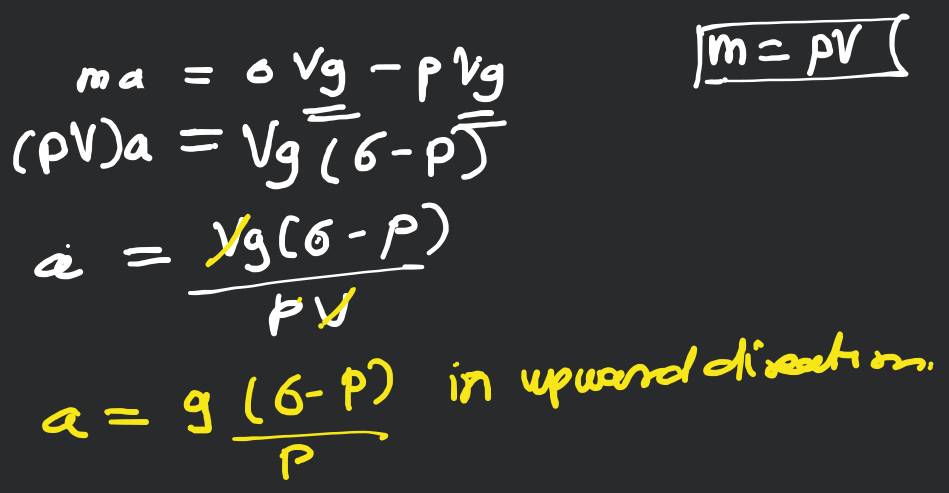 m = ρV
ma = σVg - ρVg
(ρV)a = Vg(σ-ρ)
a = Vg(σ-ρ) / ρV
a = g (σ-ρ) / ρ in upward direction.